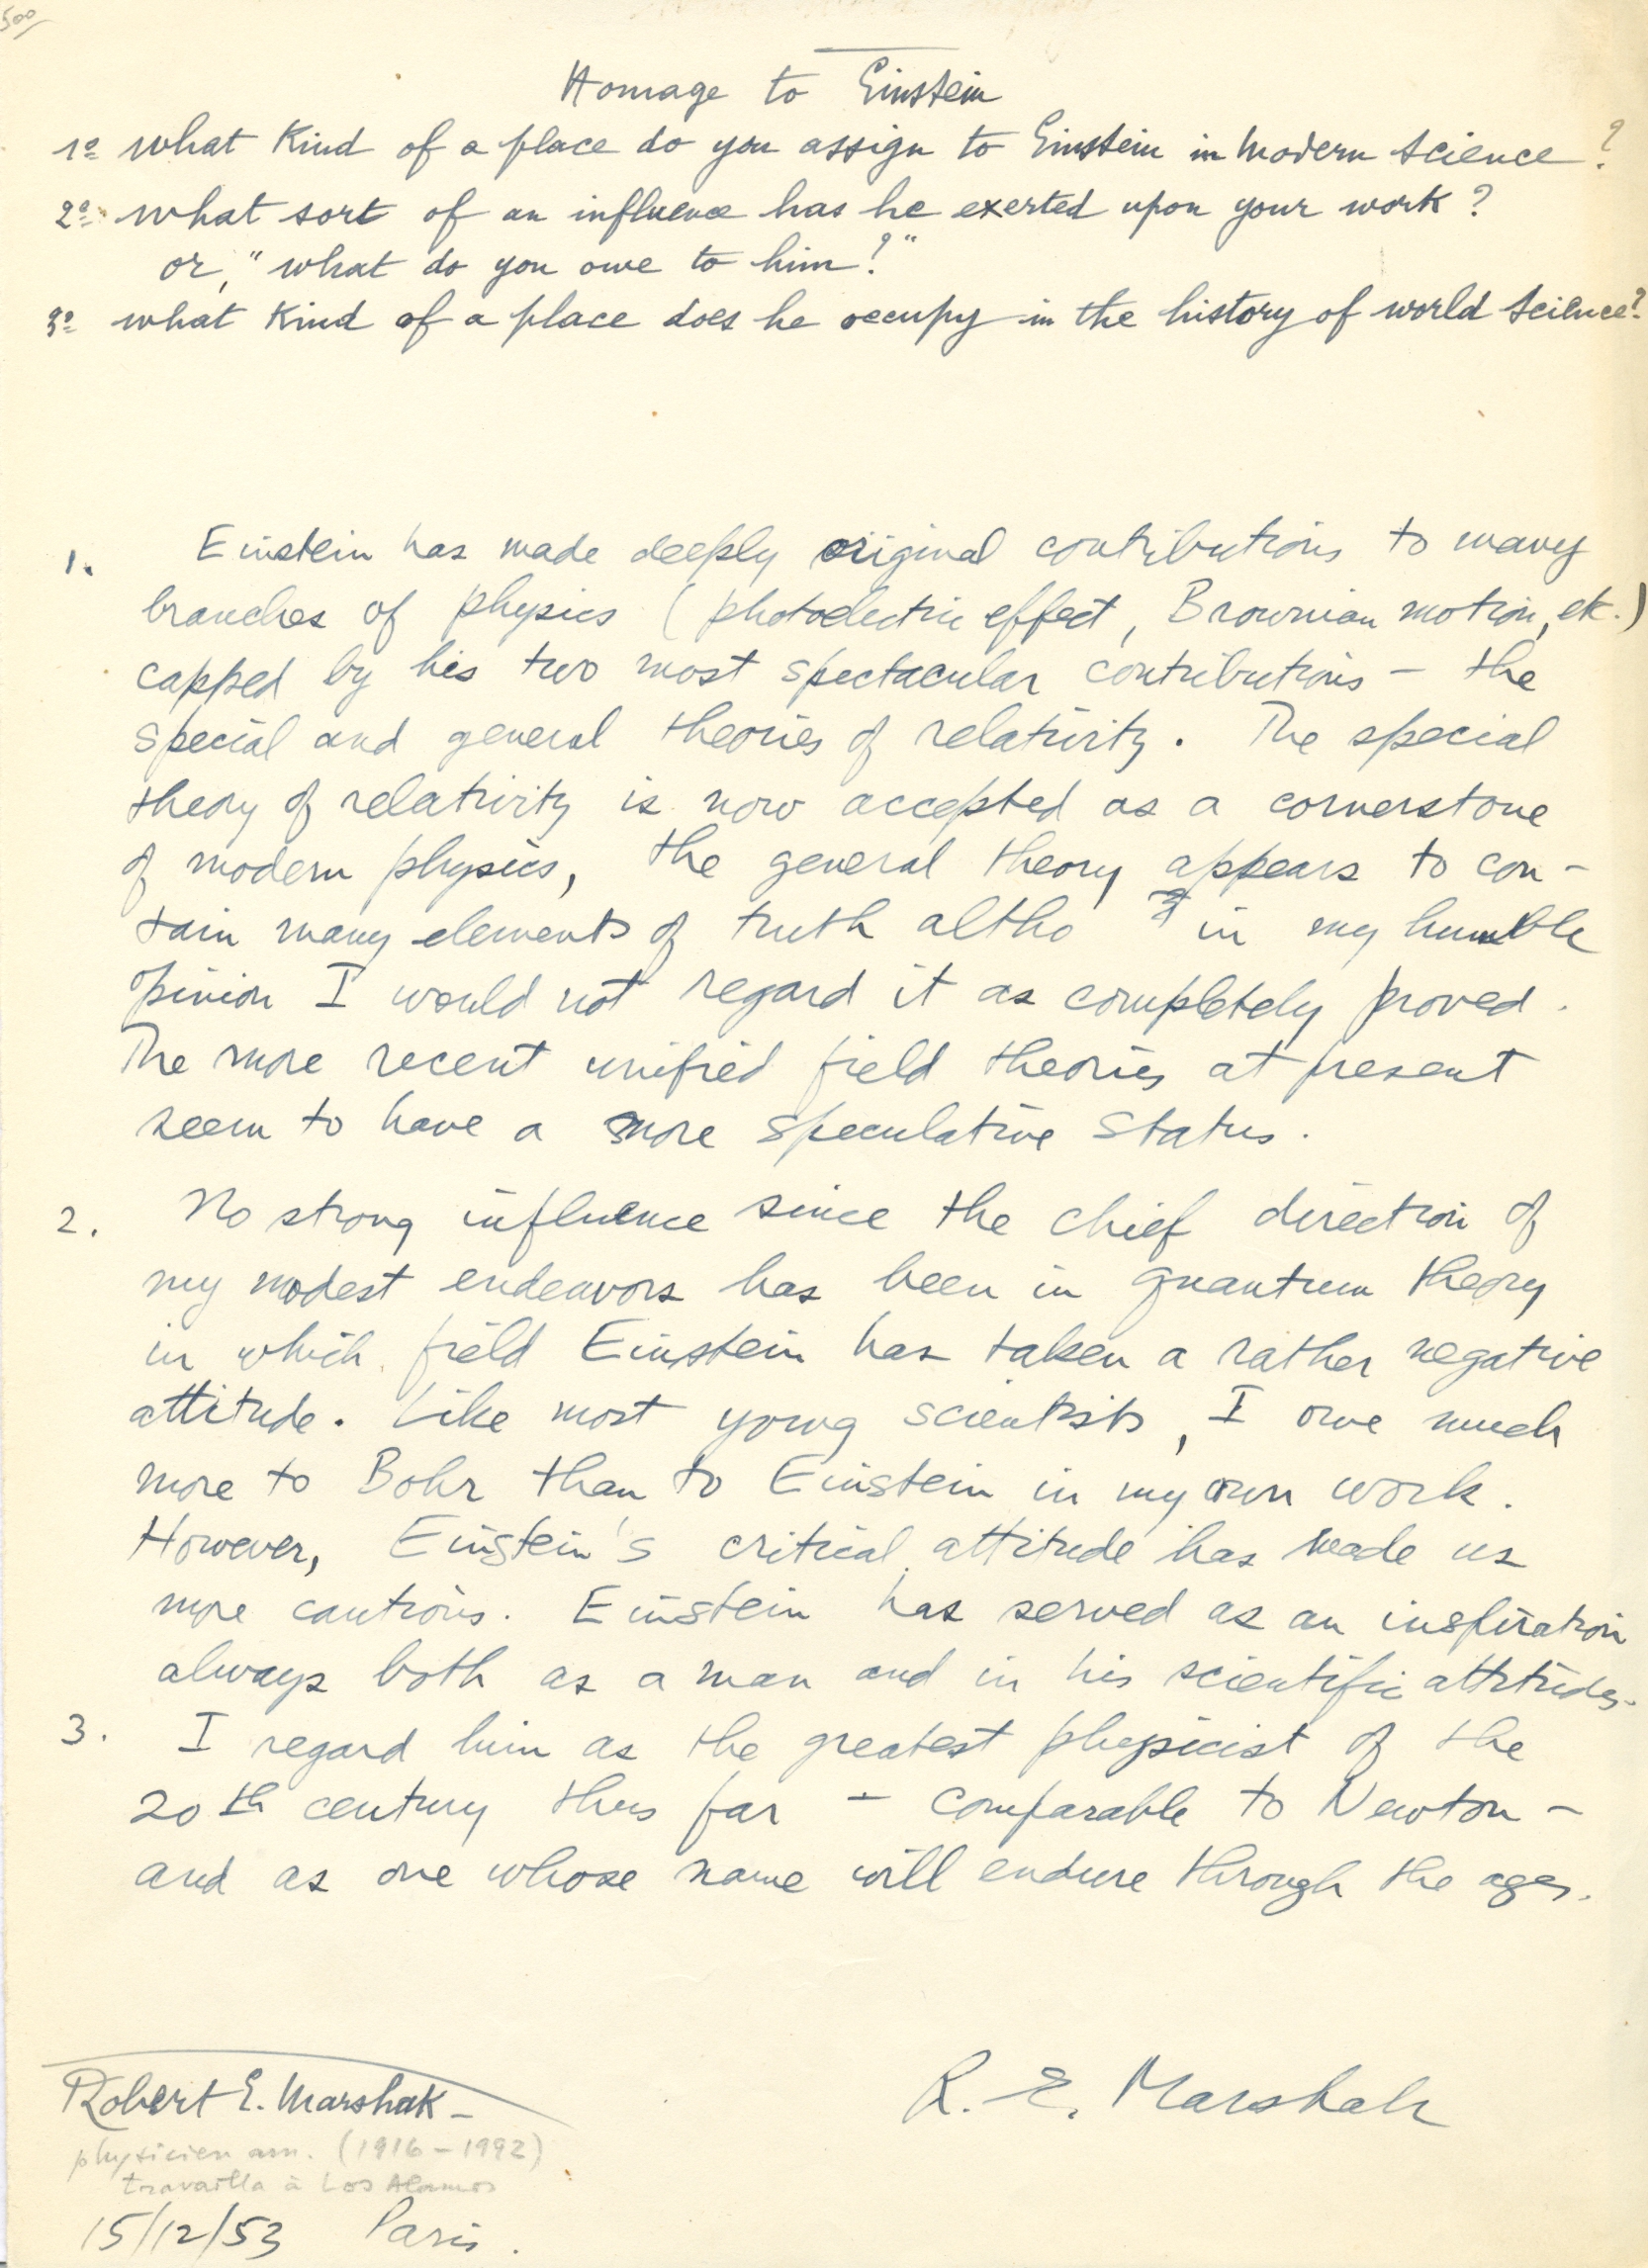 500
Homage to Einstein
1º what Kind of a place do you assign to Einstein in Modern science?
2º what sort of an influence has he exerted upon your work?
or, "what do you owe to him?"
3º what Kind of a place does he occupy in the history of world science?
1. Einstein has made deeply original contributions to many
branches of physics (photoelectric effect, Brownian motion, etc.)
capped by his two most spectacular contributions – the
special and general theories of relativity. The special
theory of relativity is now accepted as a cornerstone
of modern physics, the general theory appears to con-
tain many elements of truth altho in my humble
opinion I would not regard it as completely proved.
The more recent unified field theories at present
seem to have a more speculative status.
2. No strong influence since the chief direction of
my modest endeavors has been in quantum theory
in which field Einstein has taken a rather negative
attitude. Like most young scientists, I owe much
more to Bohr than to Einstein in my own work.
However, Einstein's critical attitude has made us
more cautious. Einstein has served as an inspiration
always both as a man and in his scientific attitudes.
3. I regard him as the greatest physicist of the
20th century thus far – comparable to Newton –
and as one whose name will endure through the ages.
R. E. Marshak
Robert E. Marshak –
physicien am. (1916–1992)
travailla à Los Alamos
15/12/53 Paris.